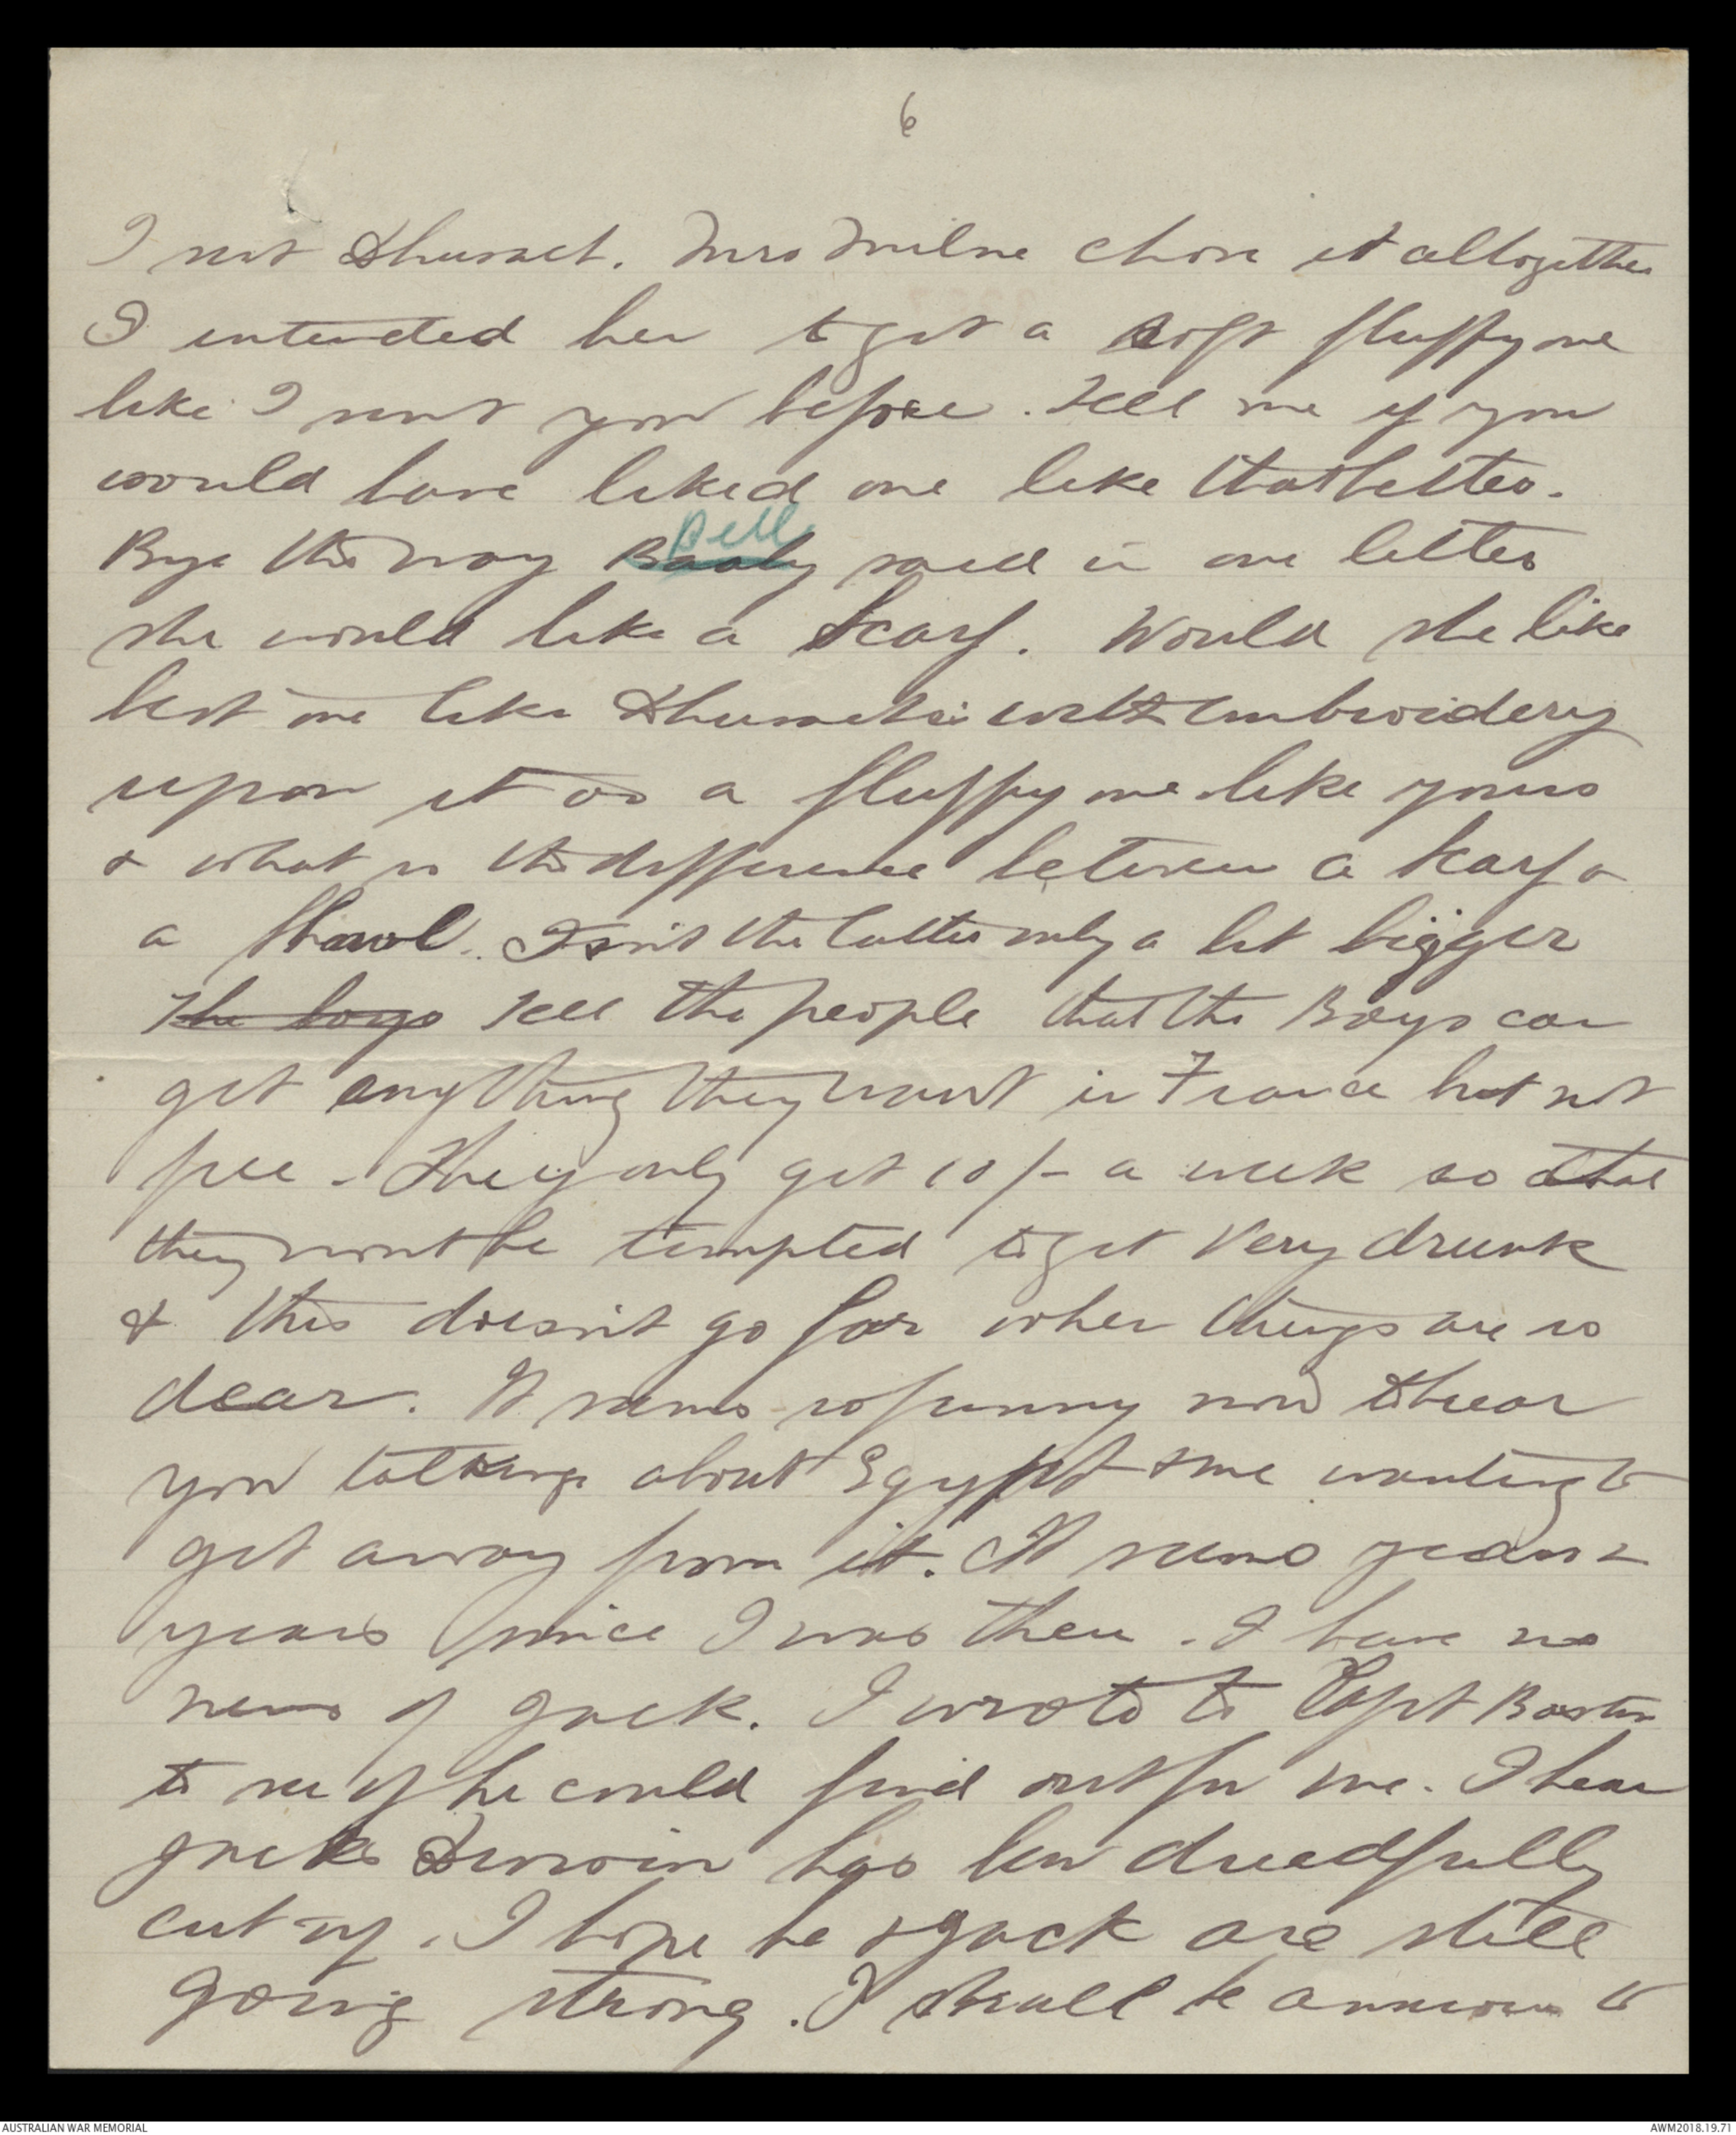 6
I sent Thurza. Mrs Milne chose it altogether
I intended her to get a soft fluffy one
like I sent you before. Tell me if you
would have liked one like that better.
Bye the way Baaby Bell said in one letter
she would like a scarf. Would she like
best one like with embroidery
upon it or a fluffy one like yours
& what is the difference between a scarf &
a shawl. Isn't the latter only a bit bigger
The boys Tell the people that the Boys can
get anything they want in France but not
free. They only get 10/- a week so that
they wont be tempted to get very drunk
& this doesn't go far when things are so
dear. It seems so funny now to hear
you talking about Egypt & me wanting to
get away from it. It seems years &
years since I was there. I have no
news of Jack. I wrote to Capt
to see if he could find out for me. I hear
Jack's has been dreadfully
cut up. I hope he & Jack are still
going strong. I shall be anxious to
AUSTRALIAN WAR MEMORIAL
AWM2018.19.71